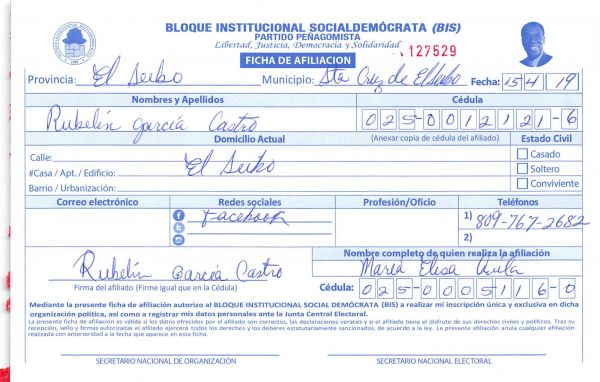 BLOQUE INSTITUCIONAL SOCIALDEMÓCRATA (BIS)
PARTIDO PEÑAGOMISTA
Libertad, Justicia, Democracia y Solidaridad
127529
FICHA DE AFILIACION
Provincia: El Seibo Municipio: Sta Cruz de El Seibo Fecha: 15 4 19
Nombres y Apellidos Cédula
Rubelín García Castro 025-0012121-6
Domicilio Actual (Anexar copia de cédula del afiliado) Estado Civil
Calle: Casado
#Casa / Apt. / Edificio: El Seibo Soltero
Barrio / Urbanización: Conviviente
Correo electrónico Redes sociales Profesión/Oficio Teléfonos
Facebook 1) 809-767-2682
2)
Nombre completo de quien realiza la afiliación
Rubelín García Castro María Elisa Avila
Firma del afiliado (Firme igual que en la Cédula) Cédula: 025-0005116-0
Mediante la presente ficha de afiliación autorizo al BLOQUE INSTITUCIONAL SOCIAL DEMÓCRATA (BIS) a realizar mi inscripción única y exclusiva en dicha
organización política, así como a registrar mis datos personales ante la Junta Central Electoral.
La presente ficha de afiliación es válida si los datos ofrecidos por el afiliado son correctos, las declaraciones veraces y si el afiliado tiene el disfrute de sus derechos civiles y políticos. Tras su
recepción, sello y firmas autorizadas el afiliado ejercerá todos los derechos y deberes estatutariamente sancionados, de acuerdo a la ley. La presente afiliación anula cualquier afiliación
realizada con anterioridad a la fecha que aparece en esta ficha.
SECRETARIO NACIONAL DE ORGANIZACIÓN SECRETARIO NACIONAL ELECTORAL